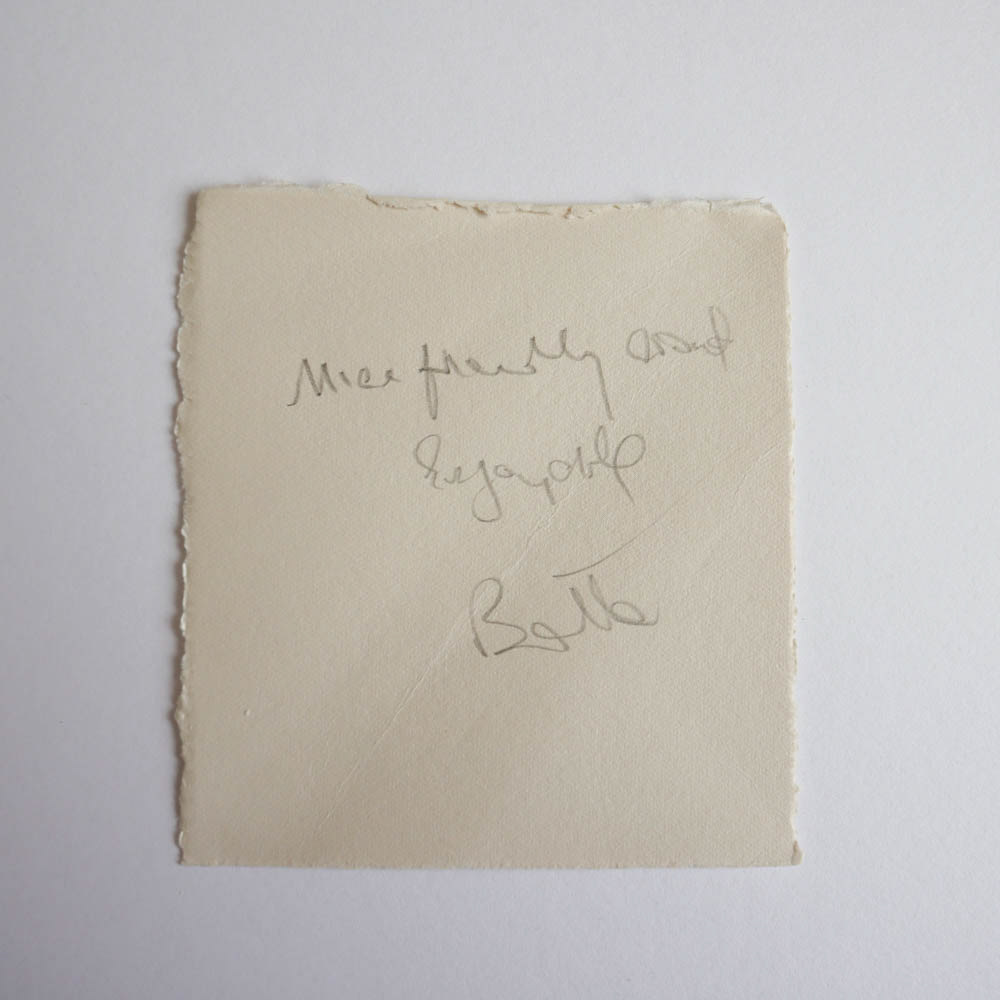 Nice friendly and
Enjoyable